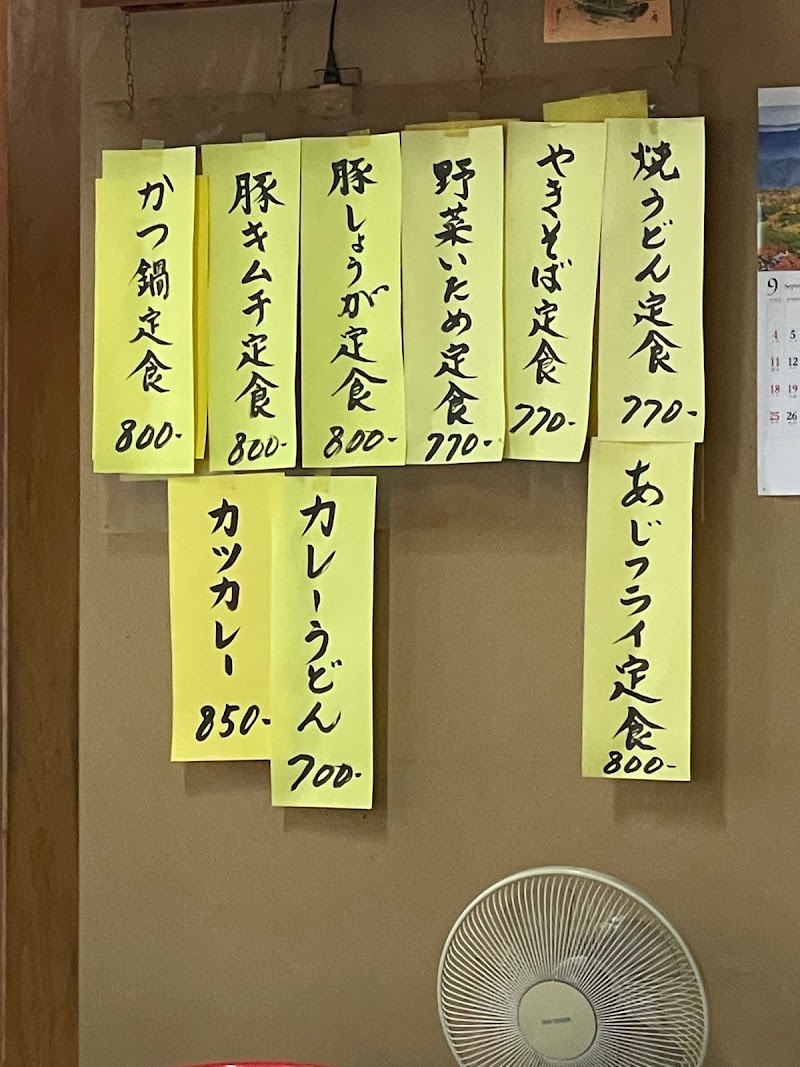 焼うどん定食
770-
やきそば定食
770-
野菜いため定食
770-
豚しょうが定食
800-
豚キムチ定食
800-
かつ鍋定食
800-
あじフライ定食
800-
カレーうどん
700-
カツカレー
850-
9
4 5
11 12
18 19
25 26